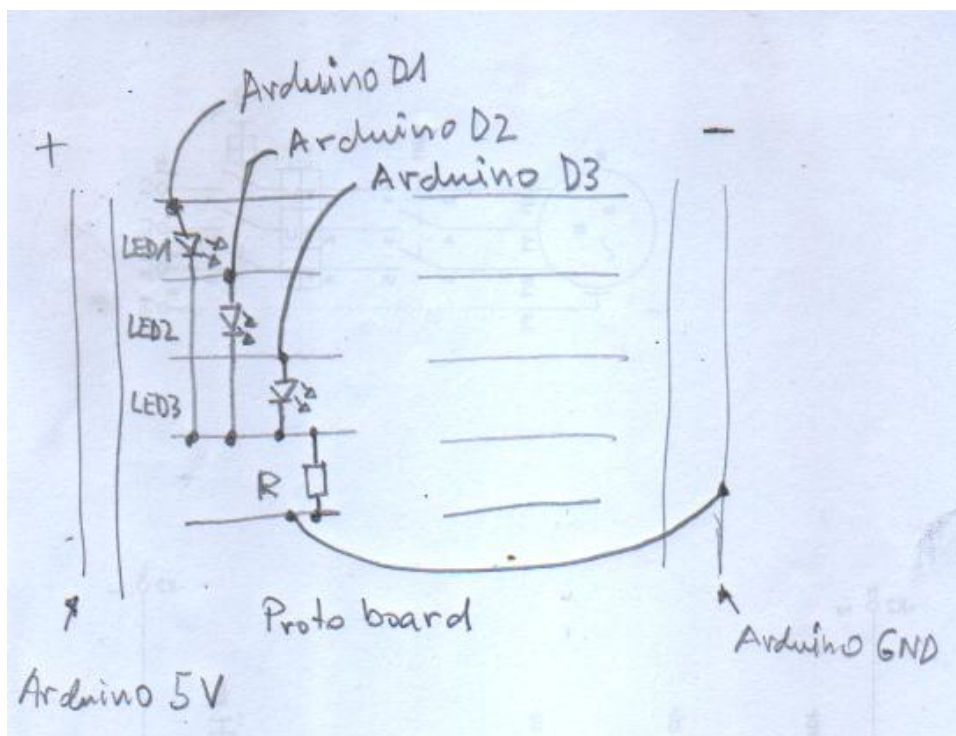 Arduino D1
+ Arduino D2 -
Arduino D3
LED1
LED2
LED3
R
Proto board
Arduino GND
Arduino 5V